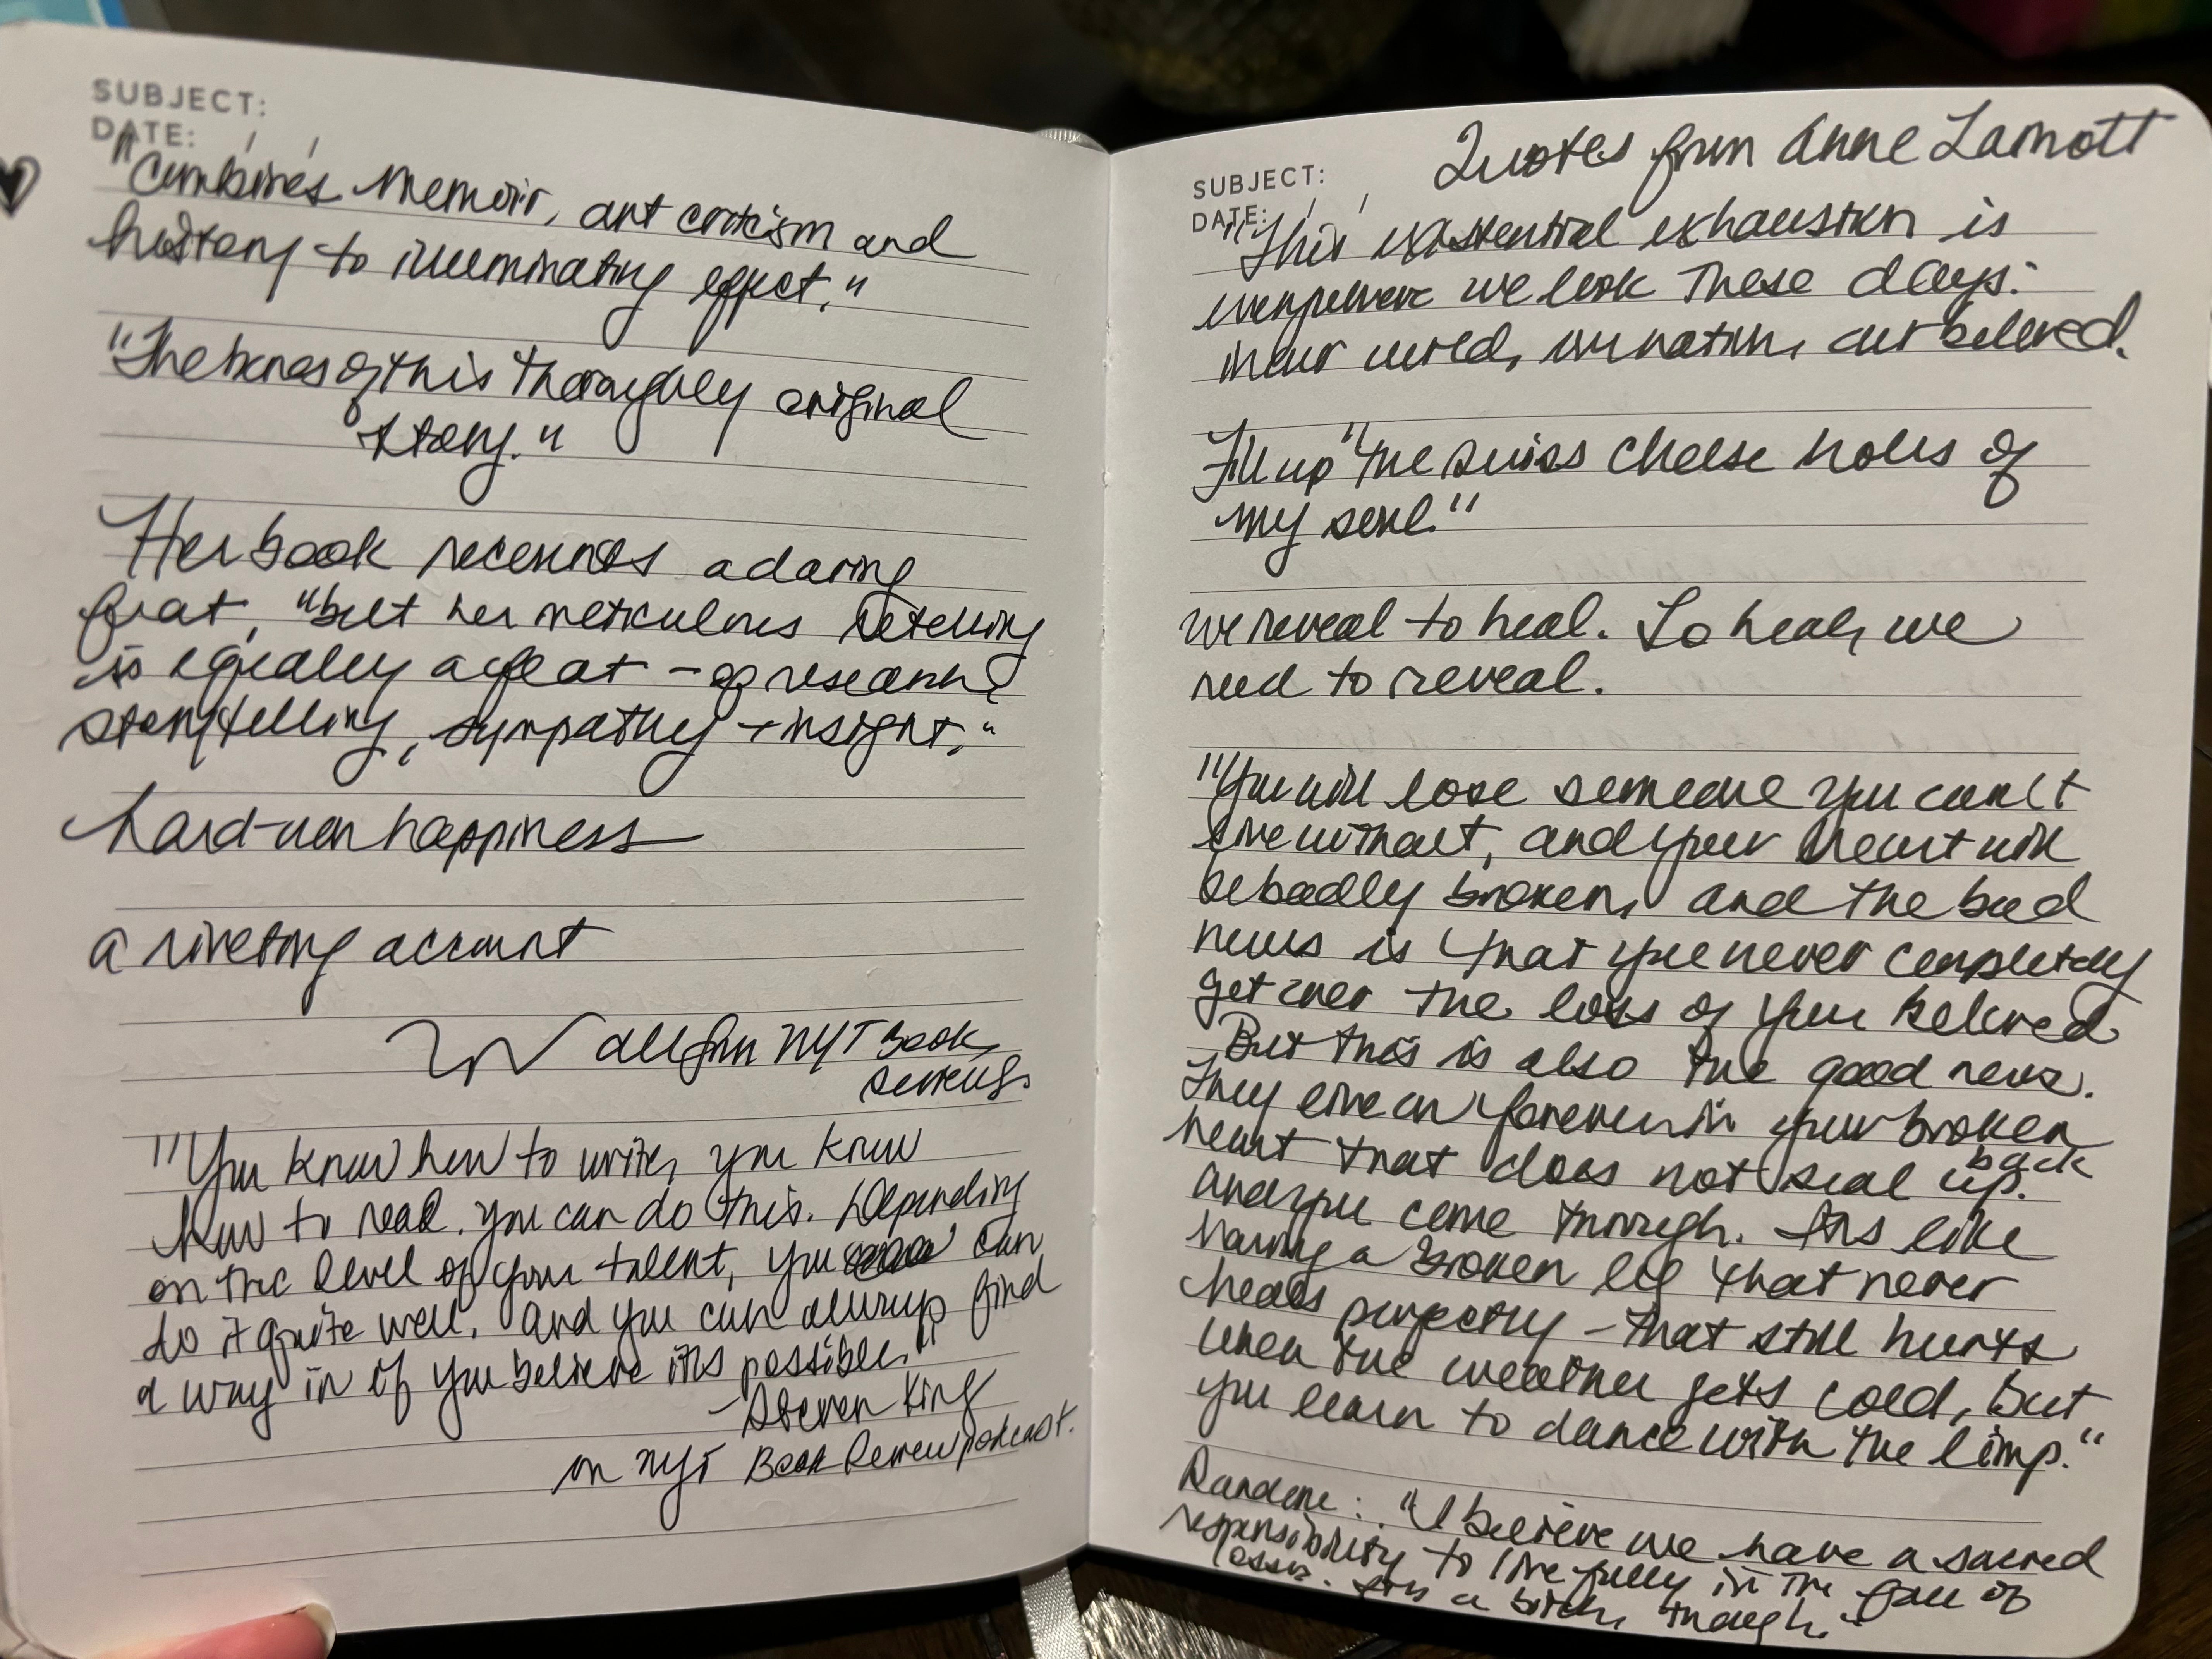 SUBJECT:
DATE: / /
"Combines memoir, art criticism and
history to illuminating effect."
"The bones of this thoroughly original
story."
Her book recounts a daring
feat, "but her meticulous retelling
is equally a feat - of research,
storytelling, sympathy + insight."
hard-won happiness
a riveting account
all from NYT Book
Reviews.
"You know how to write, you know
how to read. You can do this. Depending
on the level of your talent, you can
do it quite well. And you can always find
a way in if you believe it's possible."
- Steven King
on NYT Book Review podcast.
Quotes from Anne Lamott
SUBJECT:
DATE: / /
"This existential exhaustion is
everywhere we look these days:
in our world, our nation, our beloved.
Fill up "the swiss cheese holes of
my soul."
we reveal to heal. To heal, we
need to reveal.
"You will lose someone you can't
live without, and your heart will
be badly broken, and the bad
news is that you never completely
get over the loss of your beloved
But this is also the good news.
They live on forever in your broken
heart that does not seal back up.
And you come through. It's like
having a broken leg that never
heals perfectly - that still hurts
when the weather gets cold, but
you learn to dance with the limp."
"I believe we have a sacred
responsibility to live fully in the face of
losses. It's a bitch, though."